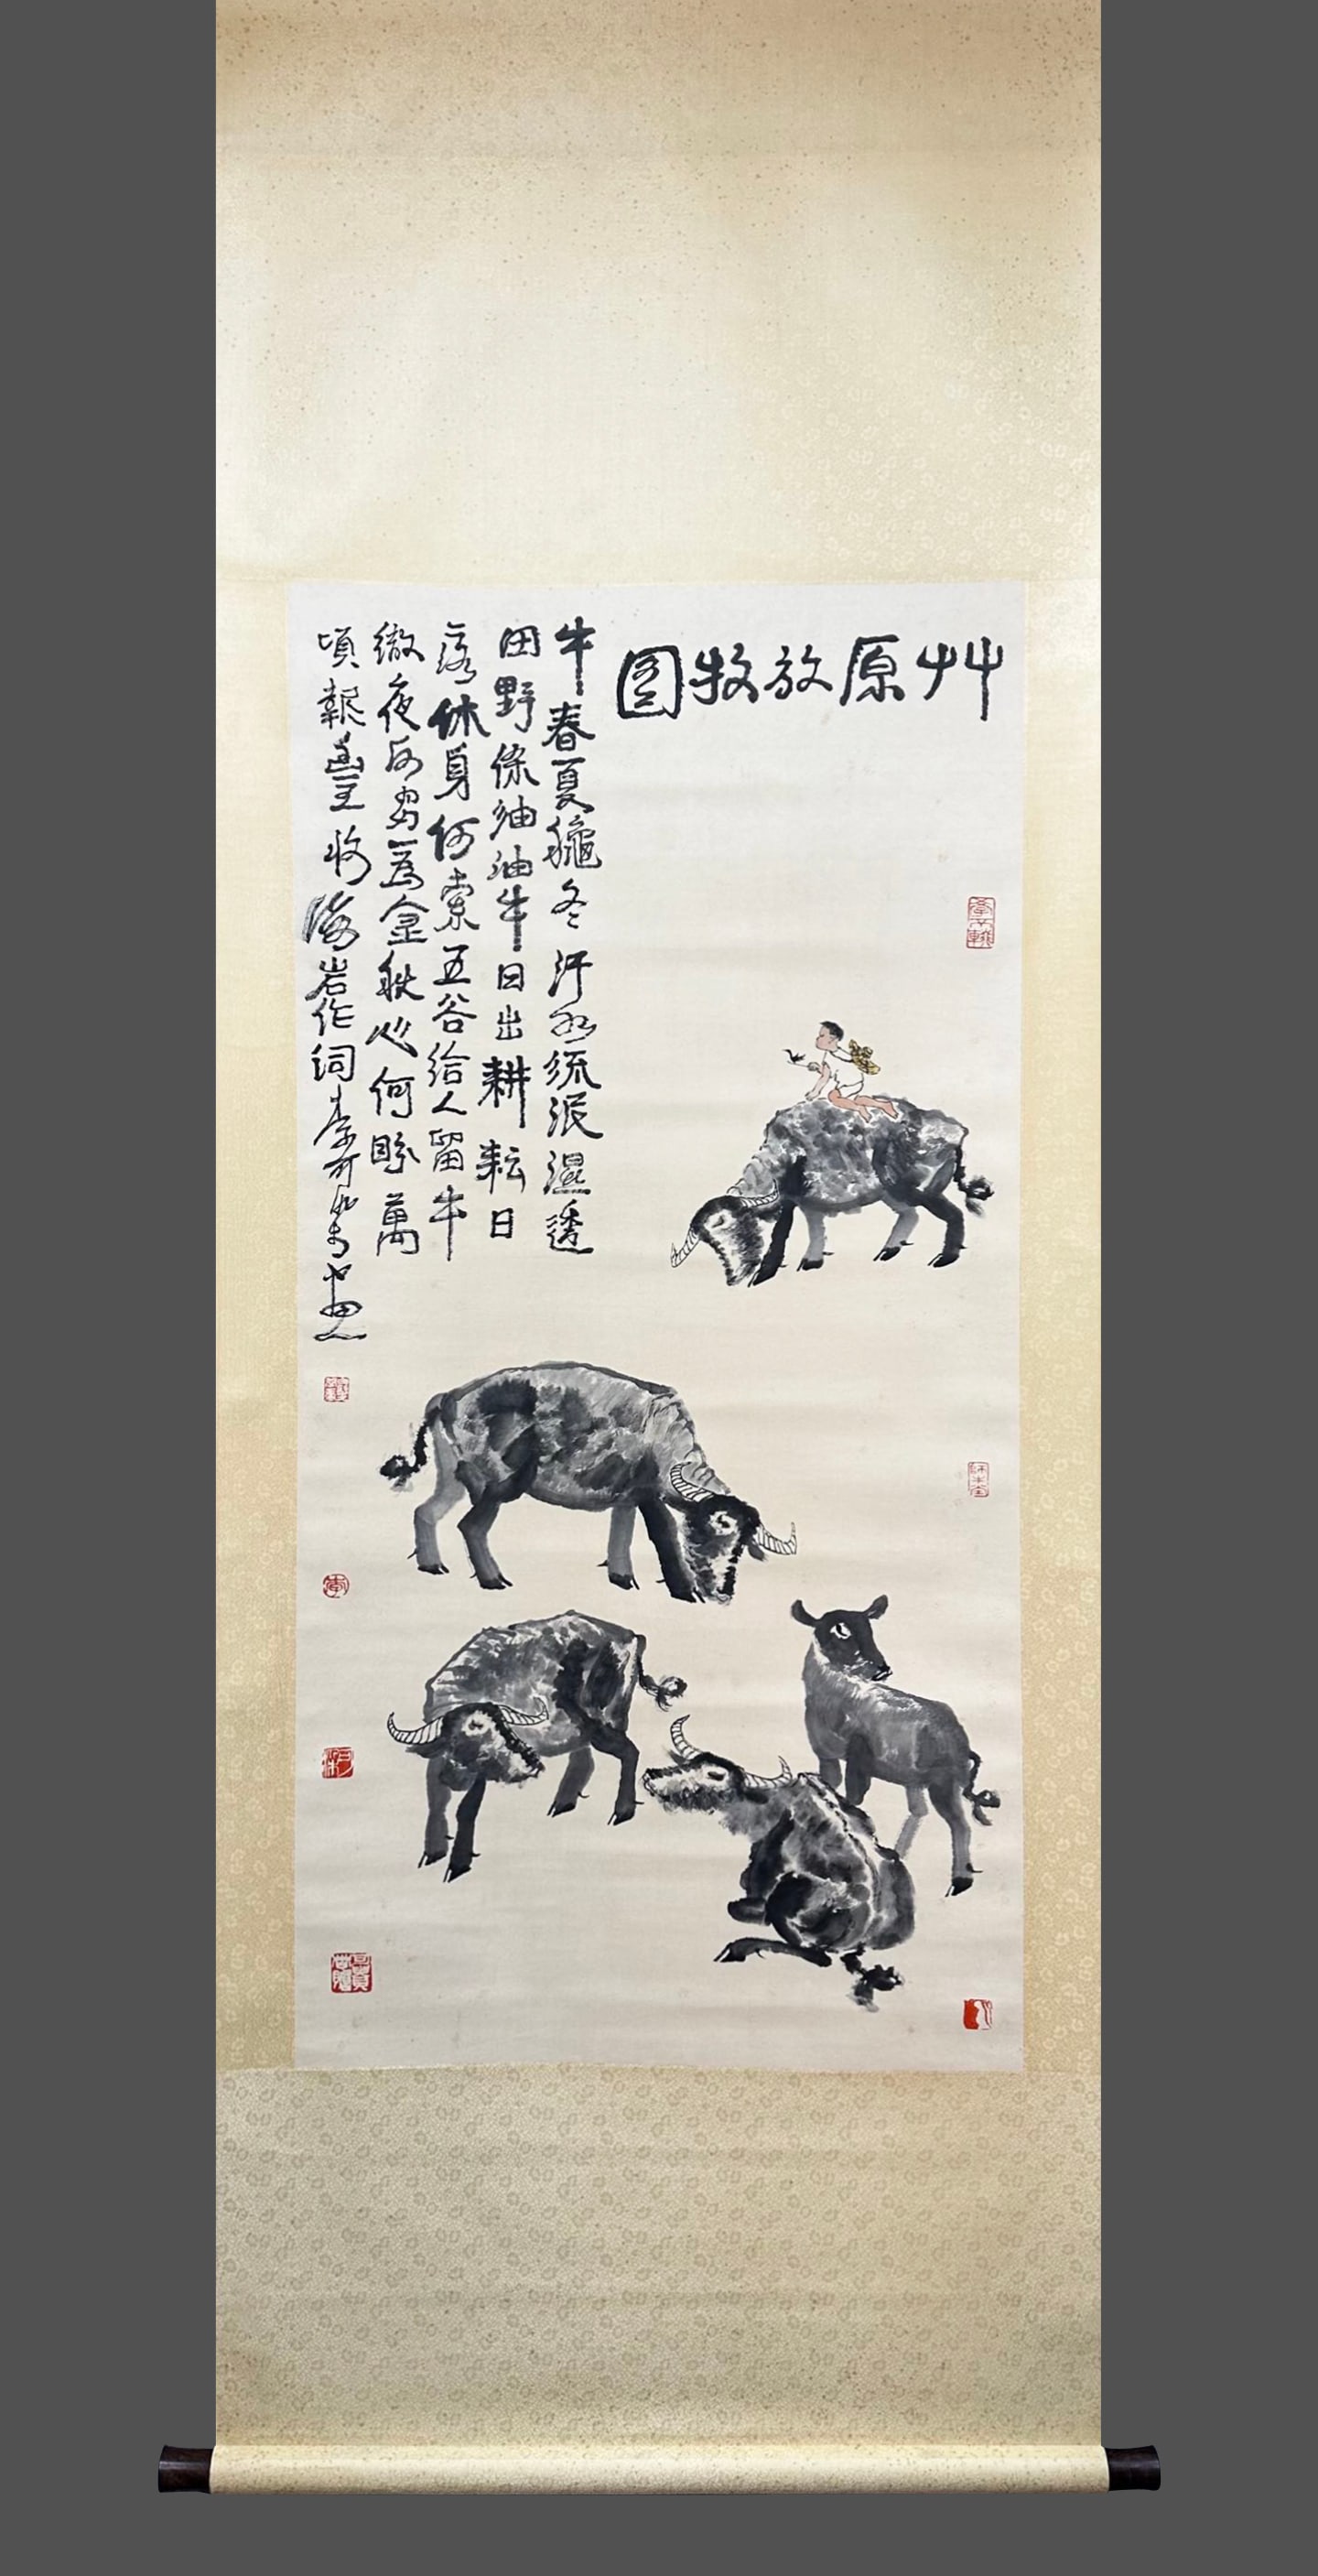 艸原放牧图
牛春夏龝冬汗水流泥濕透
田野綠油油牛日出耕耘日
落休身何索五谷給人留牛
徹夜為金秋心何盼萬
頃報豐收海岩作詞李可染畫